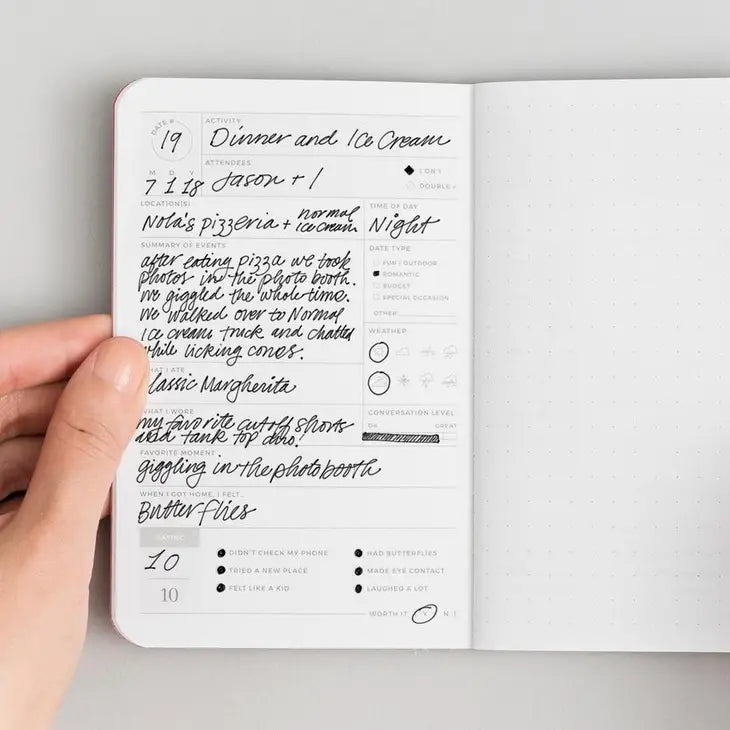 DATE #
19
ACTIVITY
Dinner and Ice Cream
M D Y
7 1 18
ATTENDEES
Jason + I
1 ON 1
DOUBLE +
LOCATION(S)
Nola's pizzeria + normal ice cream
TIME OF DAY
Night
SUMMARY OF EVENTS
after eating pizza we took
photos in the photo booth.
We giggled the whole time.
We walked over to Normal
Ice cream truck and chatted
while licking cones.
DATE TYPE
FUN / OUTDOOR
ROMANTIC
BUDGET
SPECIAL OCCASION
OTHER
WEATHER
I ATE
lassic Margherita
WHAT I WORE
my favorite cutoff shorts
and tank top duo!
CONVERSATION LEVEL
OK GREAT
FAVORITE MOMENT
giggling in the photobooth
WHEN I GOT HOME, I FELT...
Butterflies
RATING
10
10
DIDN'T CHECK MY PHONE
TRIED A NEW PLACE
FELT LIKE A KID
HAD BUTTERFLIES
MADE EYE CONTACT
LAUGHED A LOT
WORTH IT Y N